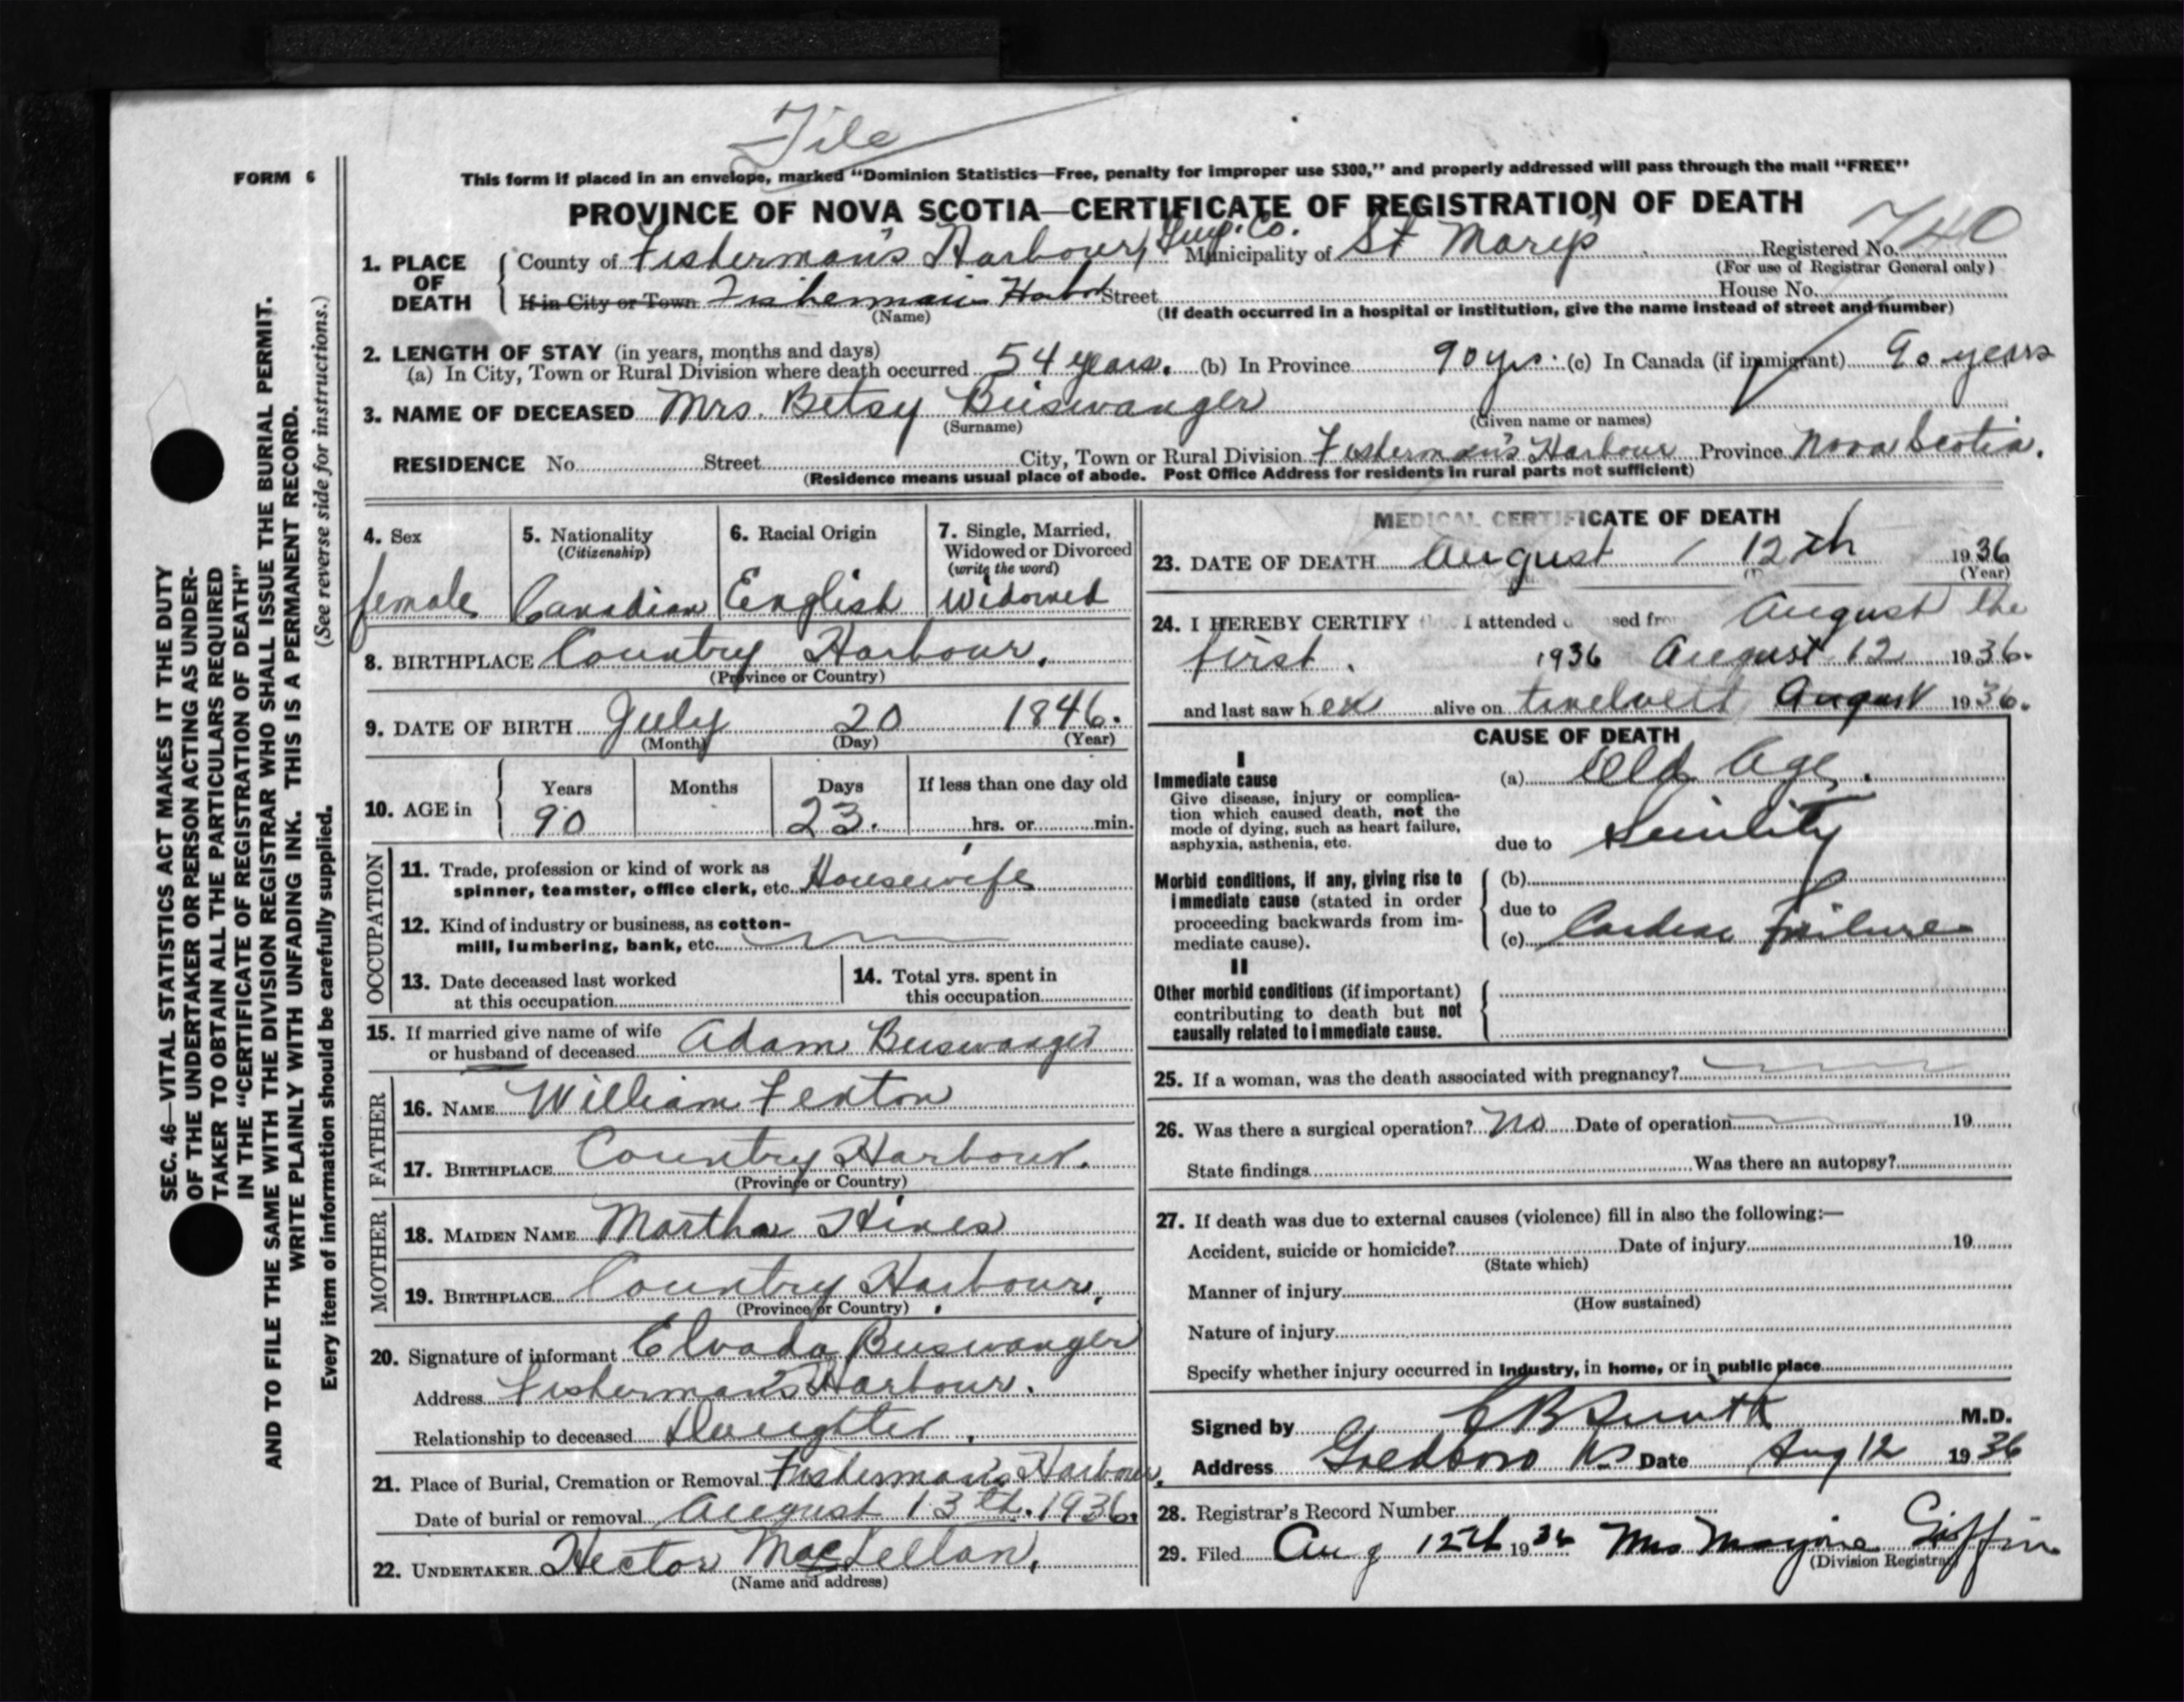 File
FORM 6
This form if placed in an envelope, marked "Dominion Statistics—Free, penalty for improper use $300," and properly addressed will pass through the mail "FREE"
PROVINCE OF NOVA SCOTIA—CERTIFICATE OF REGISTRATION OF DEATH
740
1. PLACE OF DEATH County of Fisherman's Harbour, Guy. Co. Municipality of St Mary's Registered No.
(For use of Registrar General only)
If in City or Town Fishermans Harbor Street House No.
(Name) (If death occurred in a hospital or institution, give the name instead of street and number)
2. LENGTH OF STAY (in years, months and days)
(a) In City, Town or Rural Division where death occurred 54 years. (b) In Province 90 yrs. (c) In Canada (if immigrant) 90 years
3. NAME OF DECEASED Mrs. Betsy Beiswanger
(Surname) (Given name or names)
RESIDENCE No. Street City, Town or Rural Division Fisherman's Harbour Province Nova Scotia.
(Residence means usual place of abode. Post Office Address for residents in rural parts not sufficient)
4. Sex 5. Nationality (Citizenship) 6. Racial Origin 7. Single, Married, Widowed or Divorced (write the word)
female Canadian English Widowed
8. BIRTHPLACE Country Harbour.
(Province or Country)
9. DATE OF BIRTH July 20 1846.
(Month) (Day) (Year)
10. AGE in Years Months Days If less than one day old
90 23. hrs. or min.
OCCUPATION
11. Trade, profession or kind of work as
spinner, teamster, office clerk, etc. Housewife
12. Kind of industry or business, as cotton-
mill, lumbering, bank, etc.
13. Date deceased last worked
at this occupation
14. Total yrs. spent in
this occupation
15. If married give name of wife
or husband of deceased Adam Beiswanger
FATHER
16. NAME William Fenton
17. BIRTHPLACE Country Harbour.
(Province or Country)
MOTHER
18. MAIDEN NAME Martha Hines
19. BIRTHPLACE Country Harbour.
(Province or Country)
20. Signature of informant Elvada Beiswanger
Address Fisherman's Harbour.
Relationship to deceased Daughter.
21. Place of Burial, Cremation or Removal Fisherman's Harbour.
Date of burial or removal August 13th. 1936.
22. UNDERTAKER Hector MacLellan.
(Name and address)
MEDICAL CERTIFICATE OF DEATH
23. DATE OF DEATH August 12th 1936
(Year)
24. I HEREBY CERTIFY I attended sed from August the
first. 1936 August 12 1936.
and last saw her alive on twelveth August 1936.
CAUSE OF DEATH
I
Immediate cause
Give disease, injury or complica-
tion which caused death, not the
mode of dying, such as heart failure,
asphyxia, asthenia, etc.
(a) Old Age.
due to Senility
Morbid conditions, if any, giving rise to
immediate cause (stated in order
proceeding backwards from im-
mediate cause).
(b)
due to
(c) Cardiac Failure
II
Other morbid conditions (if important)
contributing to death but not
causally related to immediate cause.
25. If a woman, was the death associated with pregnancy?
26. Was there a surgical operation? No Date of operation 19
State findings Was there an autopsy?
27. If death was due to external causes (violence) fill in also the following:—
Accident, suicide or homicide? Date of injury 19
(State which)
Manner of injury
(How sustained)
Nature of injury
Specify whether injury occurred in industry, in home, or in public place
Signed by C B Smith M.D.
Address Goldboro NS Date Aug 12 1936
28. Registrar's Record Number
29. Filed Aug 12th 1936 Mrs Marjorie Giffin
(Division Registrar)
SEC. 46—VITAL STATISTICS ACT MAKES IT THE DUTY
OF THE UNDERTAKER OR PERSON ACTING AS UNDER-
TAKER TO OBTAIN ALL THE PARTICULARS REQUIRED
IN THE "CERTIFICATE OF REGISTRATION OF DEATH"
AND TO FILE THE SAME WITH THE DIVISION REGISTRAR WHO SHALL ISSUE THE BURIAL PERMIT.
WRITE PLAINLY WITH UNFADING INK. THIS IS A PERMANENT RECORD.
Every item of information should be carefully supplied. (See reverse side for instructions.)